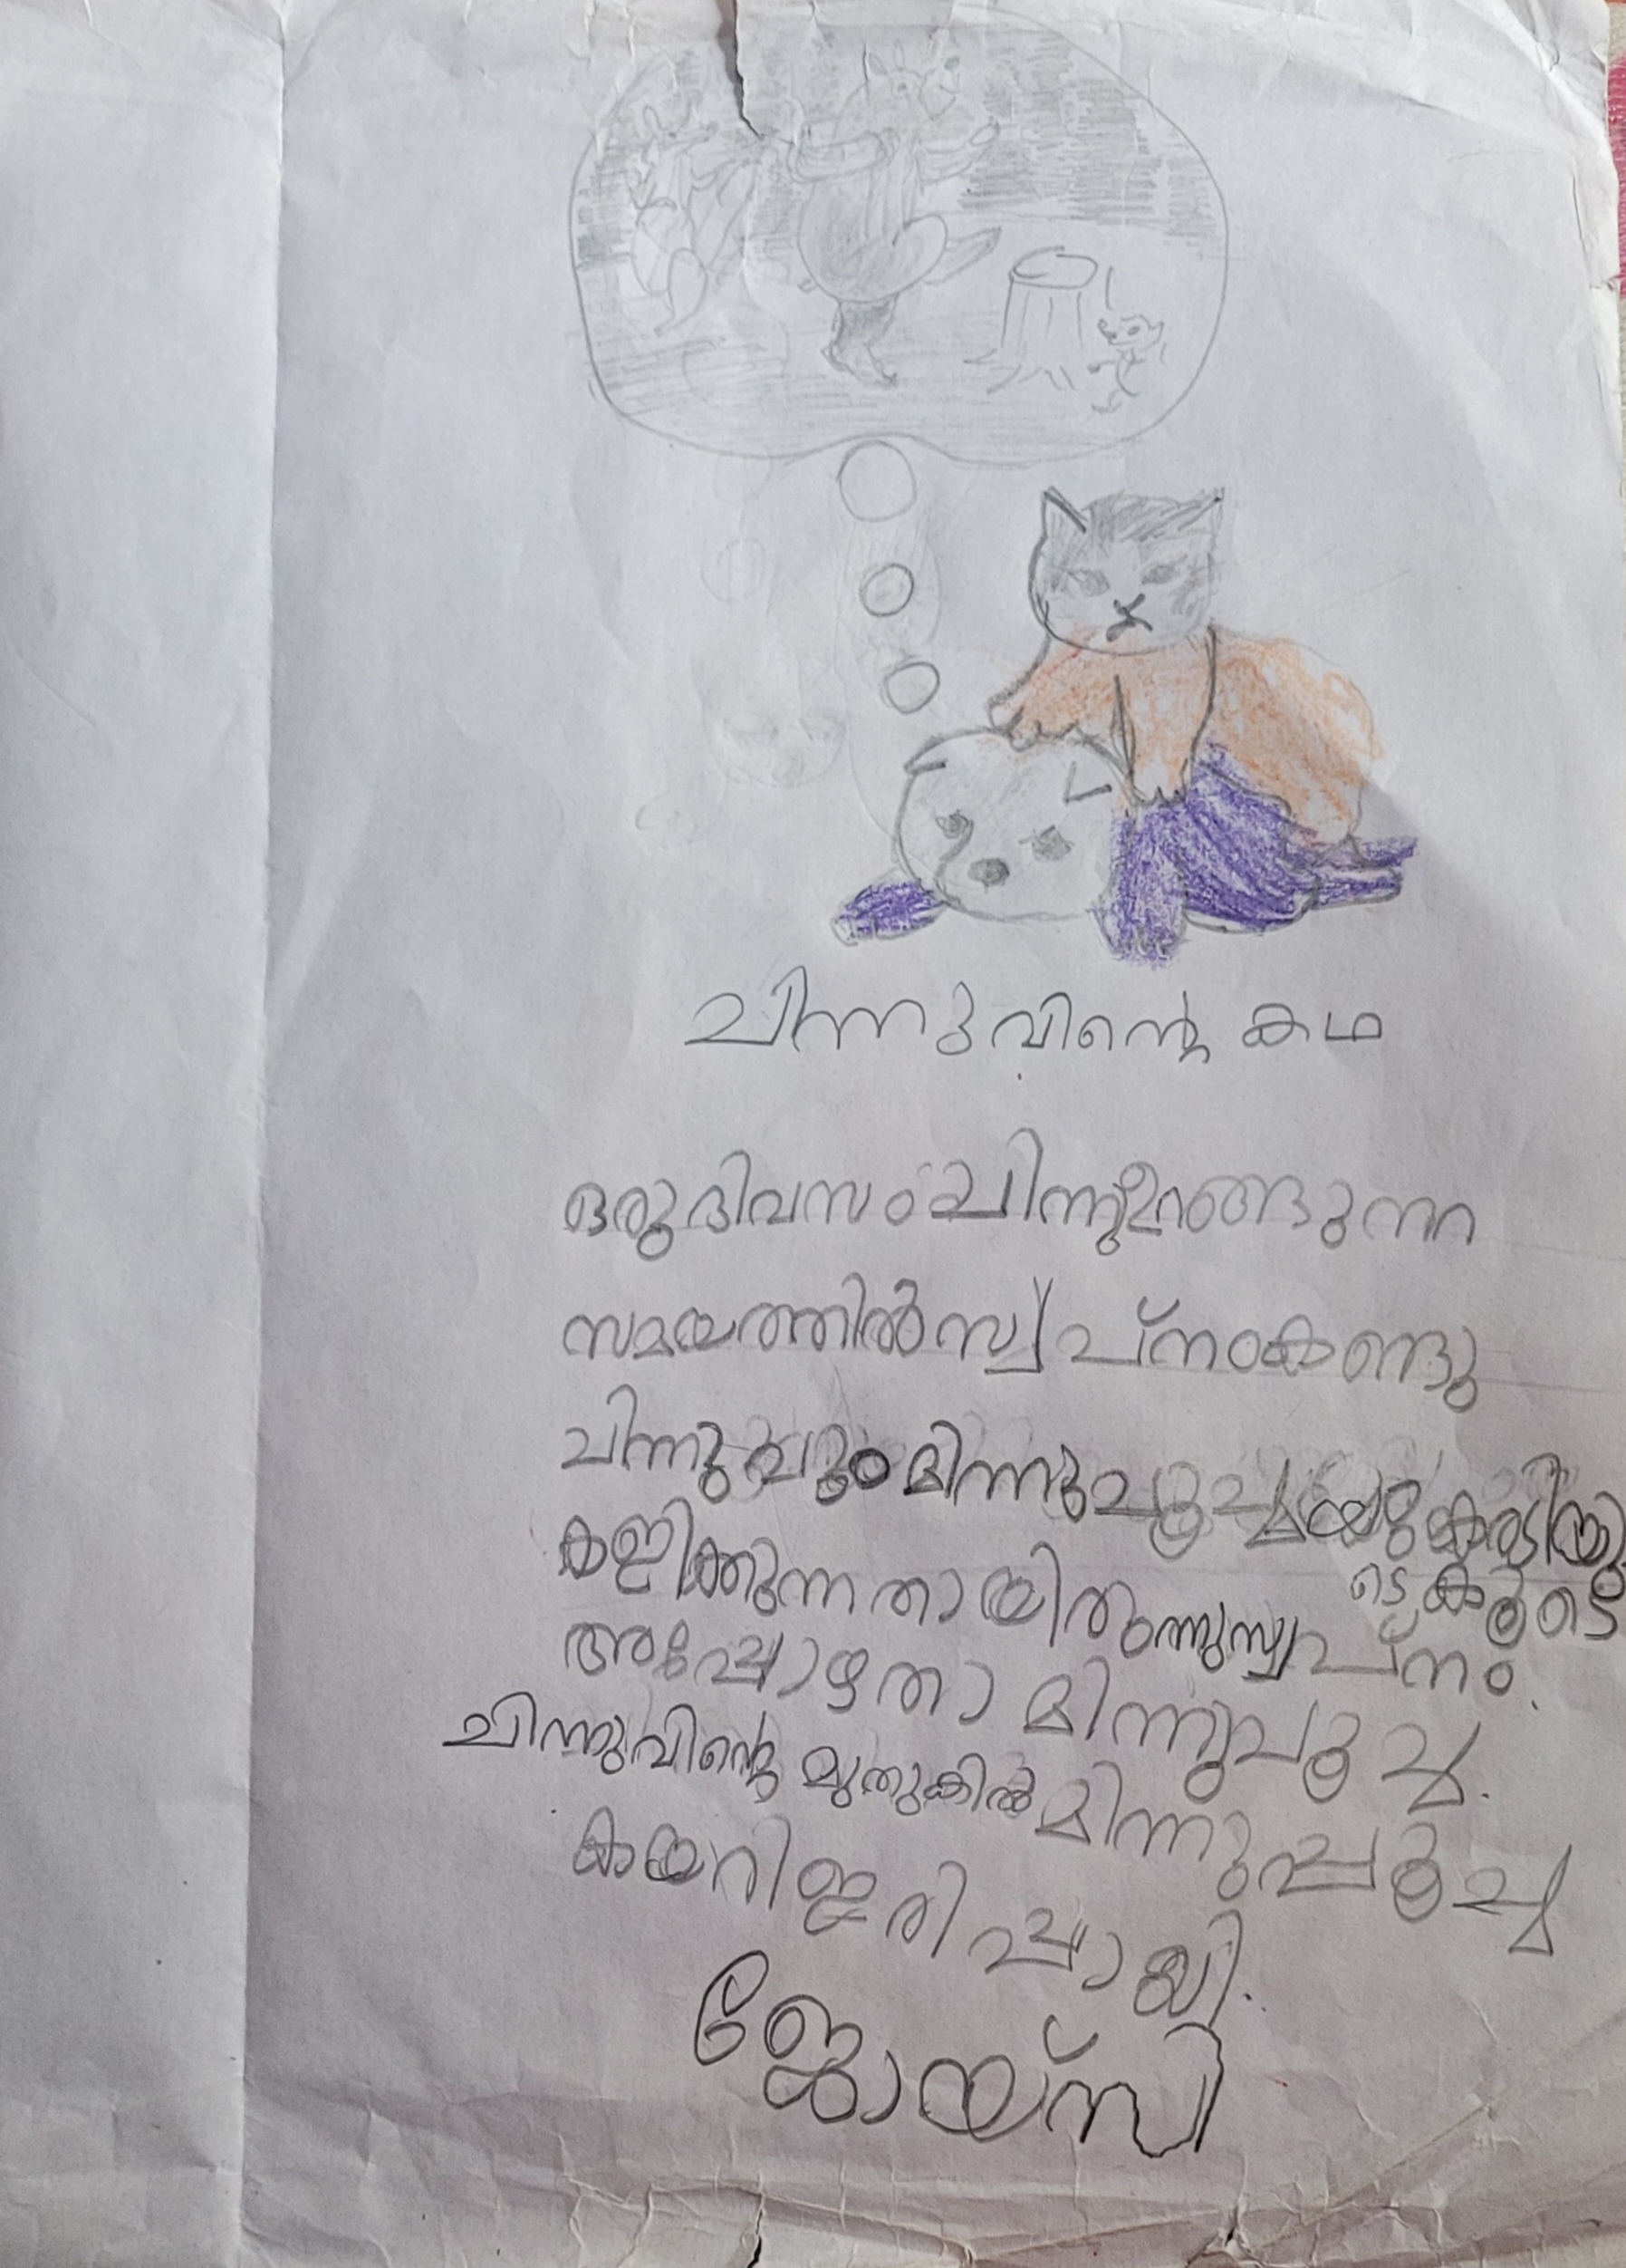 ചിന്നുവിന്റെ കഥ
ഒരു ദിവസം ചിന്നു ഉറങ്ങുന്ന
സമയത്തിൽ സ്വപ്നം കണ്ടു
ചിന്നുവും മിന്നു പൂച്ചയും കരടിയു
ടെ കൂടെ
കളിക്കുന്നതായിരുന്നു സ്വപ്നം.
അപ്പോഴതാ മിന്നുപൂച്ച.
ചിന്നുവിന്റെ മുതുകിൽ മിന്നുപ്പൂച്ച
കയറി ഇരിപ്പായി.
ജോയ്സി